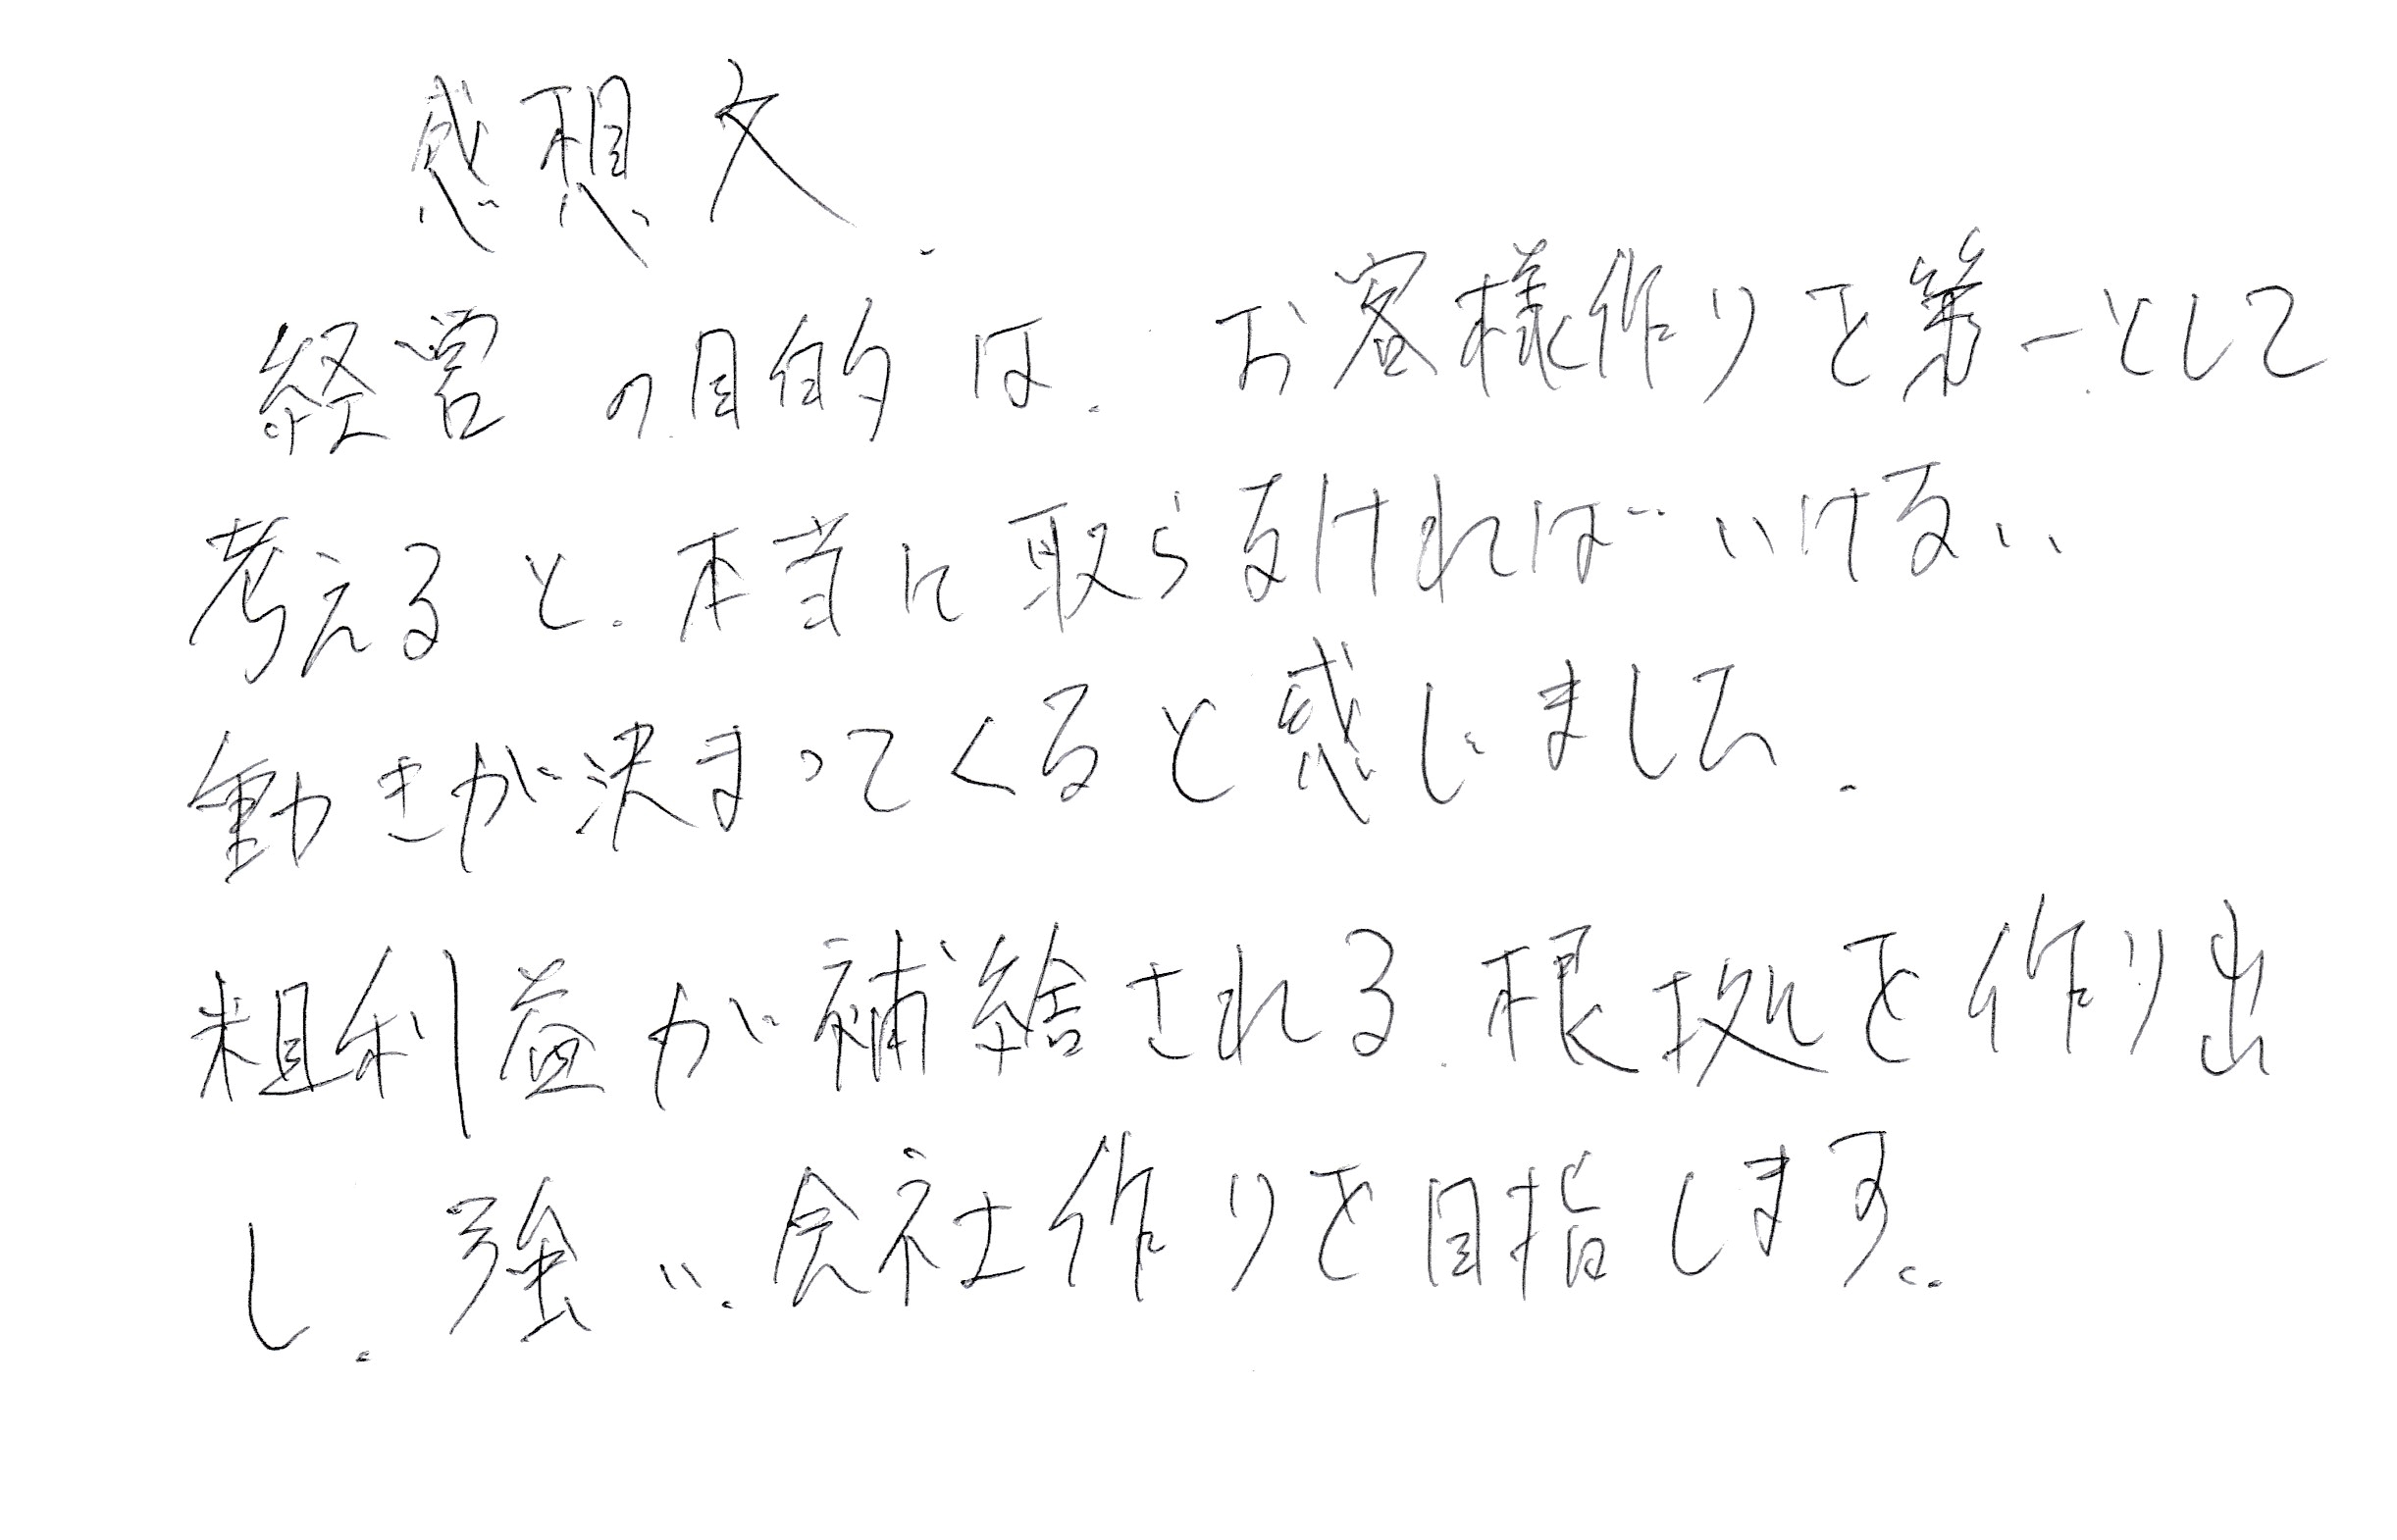 感想文
経営の目的は、お客様作りを第一として
考えると、本当に取らなければいけない
動きが決まってくると感じました。
粗利益が補給される、根拠を作り出
し、強い会社作りを目指します。